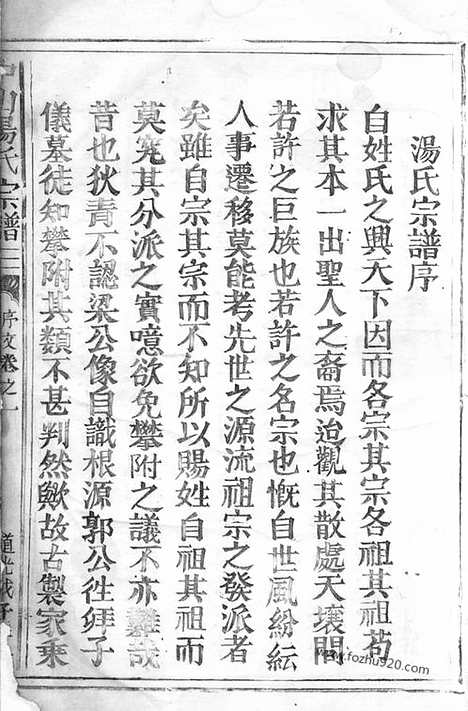 湯氏宗譜序
自姓氏之興天下因而各宗其宗各祖其祖苟
求其本一出聖人之裔焉迨觀其散處天壤間
若許之巨族也若許之名宗也慨自世風紛紜
人事遷移莫能考先世之源流祖宗之發派者
矣雖自宗其宗而不知所以賜姓自祖其祖而
莫究其分派之實噫欲免攀附之議不亦難哉
昔也狄青不認梁公像自識根源郭公徃拜子
儀墓徒知攀附其類不甚判然歟故古製家乗
山湯氏宗譜
序文卷之一
道光戊子
www.fozhu920.com